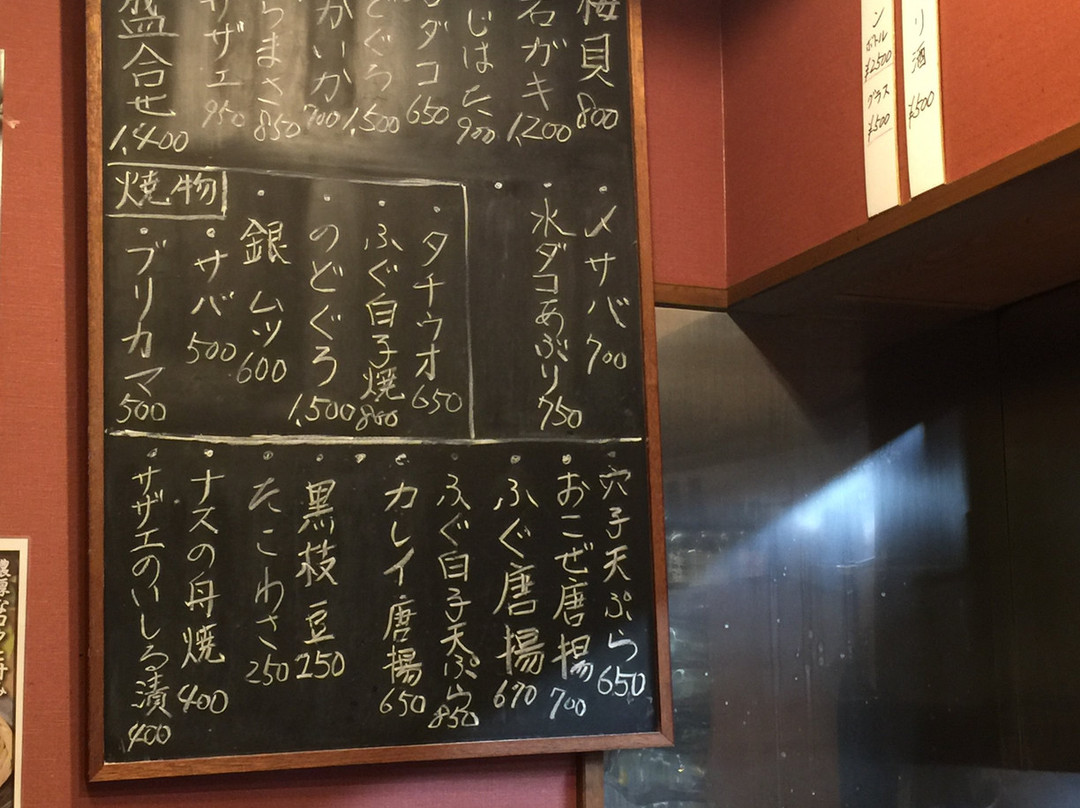 梅貝 800
岩ガキ 1,200
じはた 900
ダコ 650
どぐろ 1,500
かいか 700
らまさ 850
サザエ 950
盛合せ 1,400
・〆サバ 700
・水ダコあぶり 750
・
焼物
・タチウオ 650
・ふぐ白子焼 800
・のどぐろ 1,500
・銀ムツ 600
・サバ 500
・ブリカマ 500
・穴子天ぷら 650
・おこぜ唐揚 700
・ふぐ唐揚 670
・ふぐ白子天ぷら 850
・カレイ唐揚 650
・
・黒枝豆 250
・たこわさ 250
・ナスの丹焼 400
・サザエのいしる漬 400
リ酒 ¥500
ン ボトル ¥2500 グラス ¥500